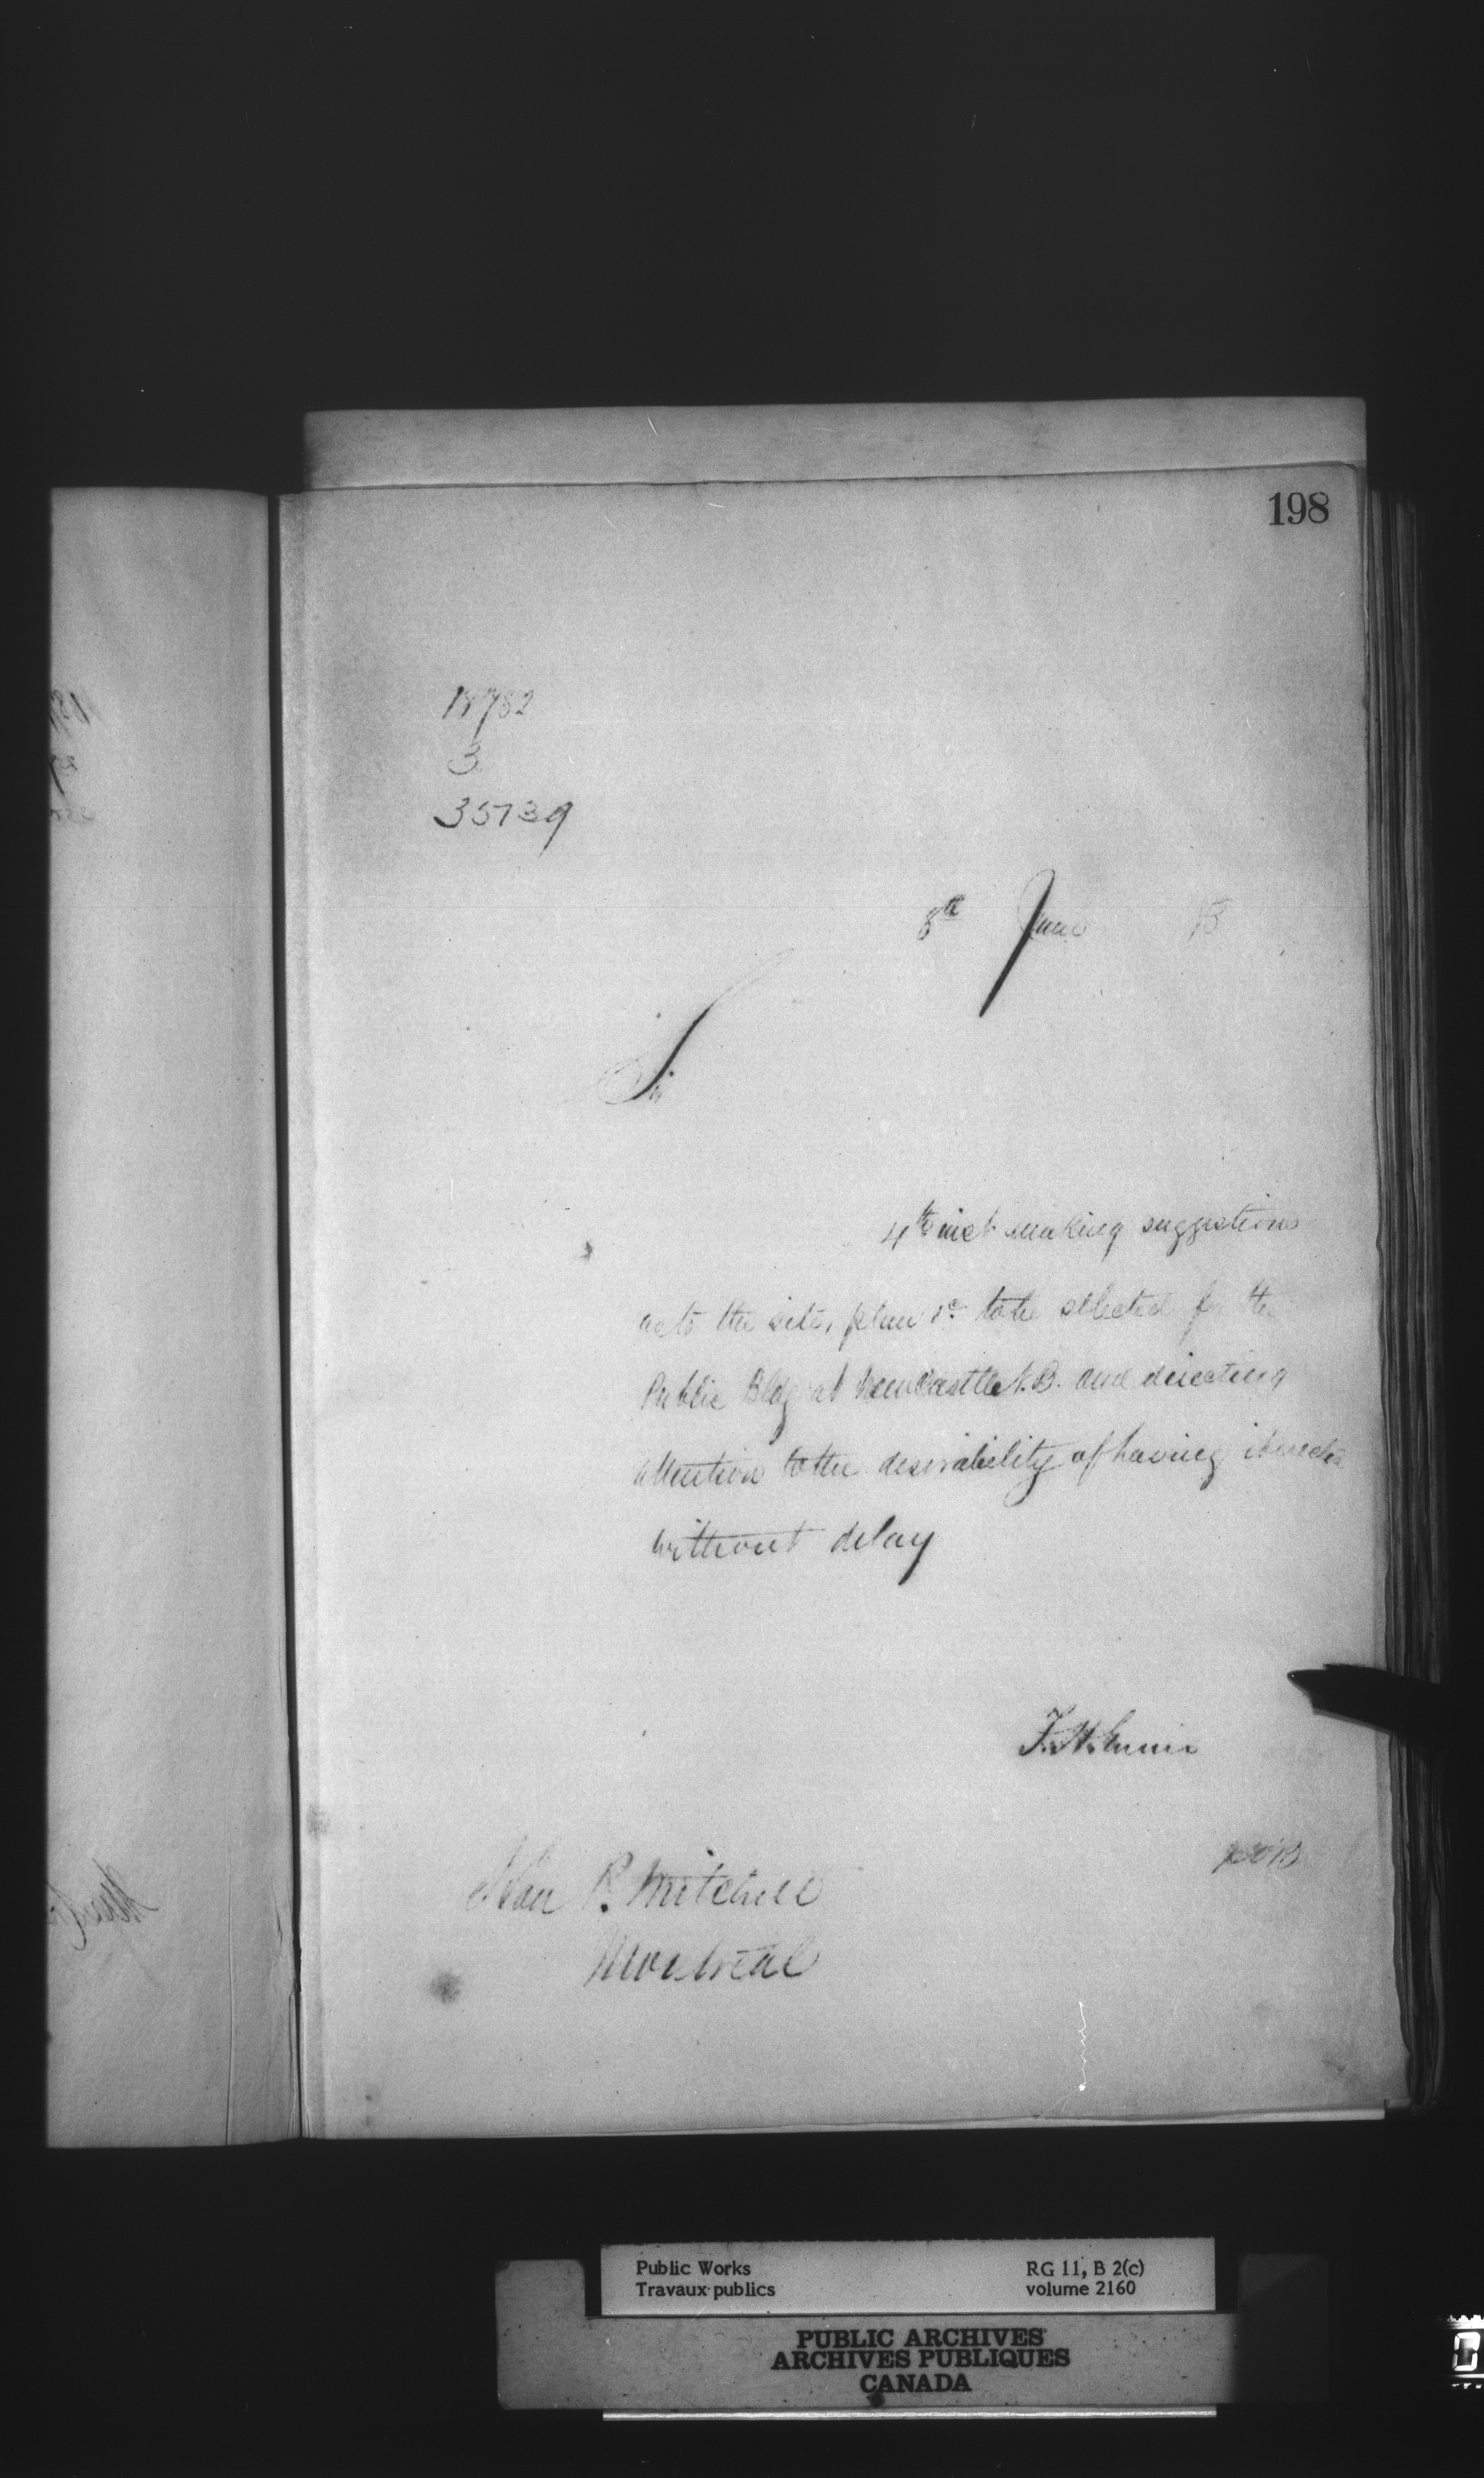 198
18782
3
35739
8th June
Sir
4th inst making suggestions
as to the site, plan &c to be selected for the
Public Bldg at Newcastle N.B. and directing
attention to the desirability of having it erected
without delay
F.H. Ennis
Hon P. Mitchell
Montreal
Public Works
Travaux publics
RG 11, B 2(c)
volume 2160
PUBLIC ARCHIVES
ARCHIVES PUBLIQUES
CANADA